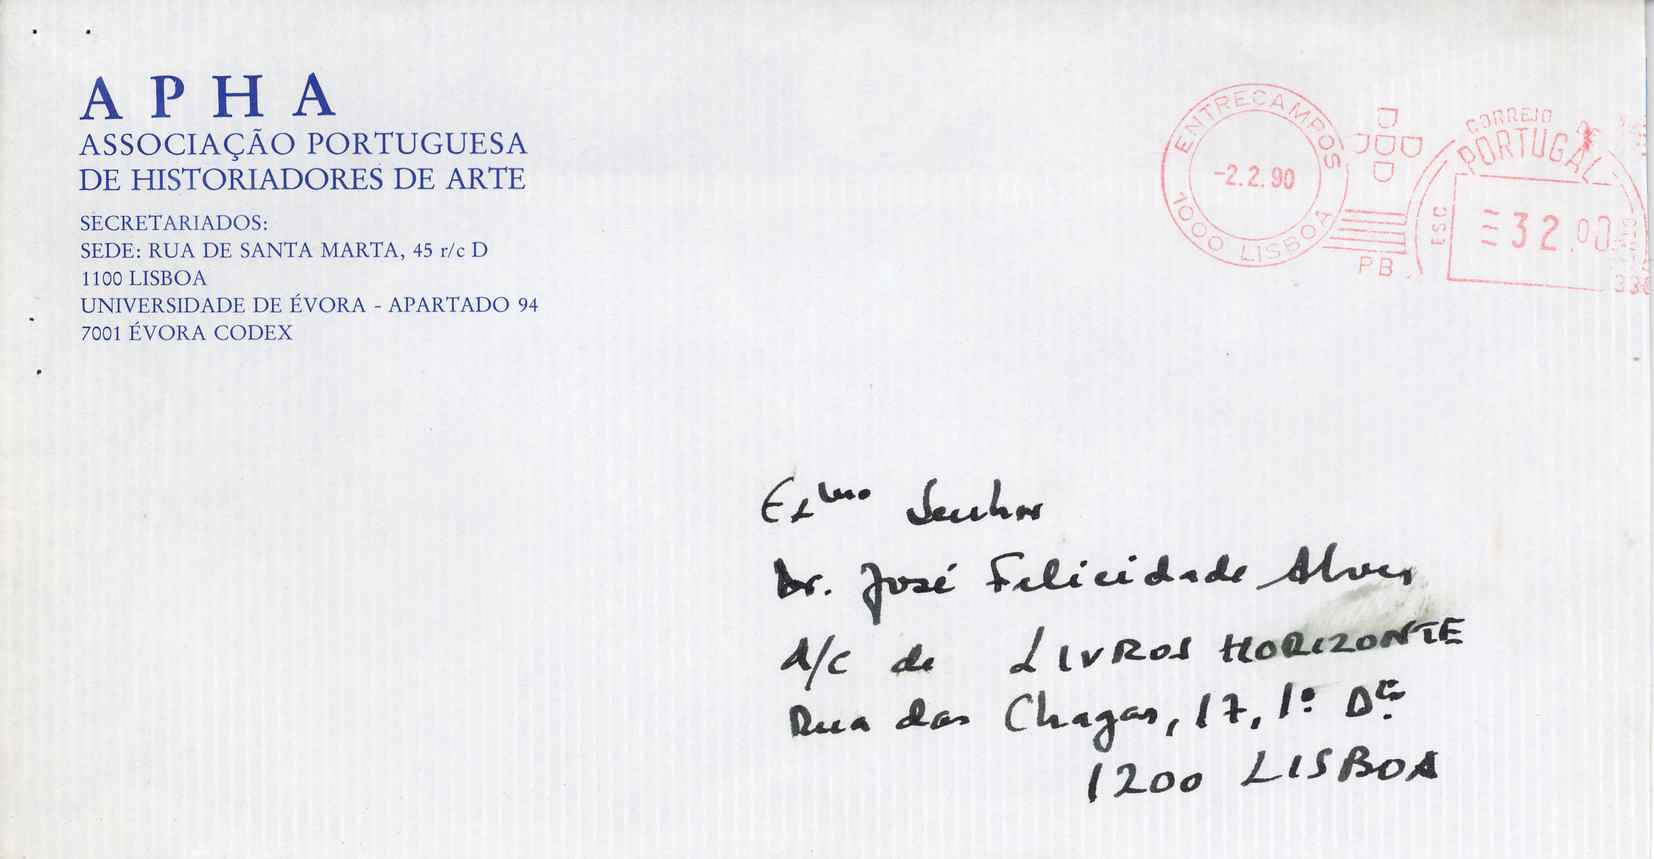 A P H A
ASSOCIAÇÃO PORTUGUESA
DE HISTORIADORES DE ARTE
SECRETARIADOS:
SEDE: RUA DE SANTA MARTA, 45 r/c D
1100 LISBOA
UNIVERSIDADE DE ÉVORA - APARTADO 94
7001 ÉVORA CODEX
ENTRECAMPOS
-2.2.90
1000 LISBOA
PB
CORREIO DE
PORTUGAL
ESC.
32.00
Exmo Senhor
Dr. José Felicidade Alves
A/C de LIVROS HORIZONTE
Rua das Chagas, 17, 1º Dto.
1200 LISBOA